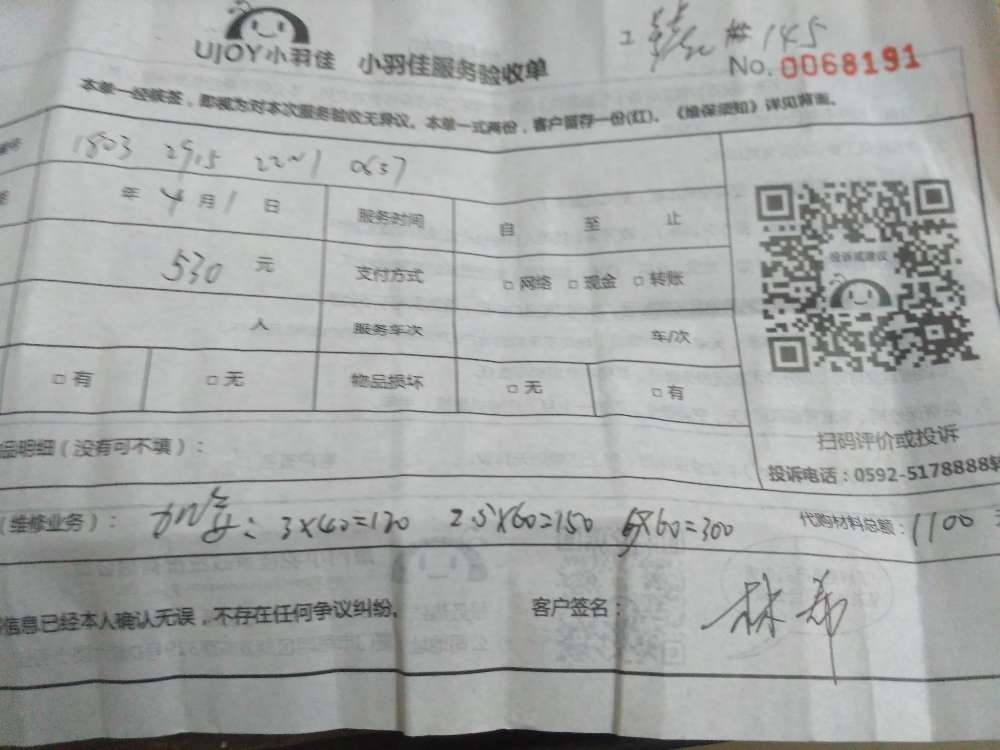 #145
UJOY小羽佳 小羽佳服务验收单
No. 0068191
本单一经核签，即视为对本次服务验收无异议。本单一式两份，客户留存一份(红)。《维保须知》详见背面。
1803 2915 2221 0637
年 4 月 1 日 服务时间 自 至 止
530 元 支付方式 □ 网络 □ 现金 □ 转账
人 服务车次 车/次
□ 有 □ 无 物品损坏 □ 无 □ 有
投诉或建议
扫码评价或投诉
投诉电话：0592-5178888转
品明细（没有可不填）：
（维修业务）： 3×40=120 2.5×60=150 5×60=300 代购材料总额：1100
信息已经本人确认无误，不存在任何争议纠纷。 客户签名：